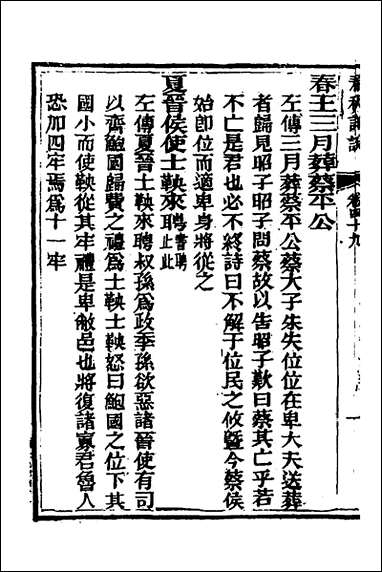 春王三月葬蔡平公
左傳三月葬蔡平公蔡大子朱失位位在卑大夫送葬
者歸見昭子昭子問蔡故以告昭子歎曰蔡其亡乎若
不亡是君也必不終詩曰不解于位民之攸曁今蔡侯
始即位而適卑身將從之
夏晉侯使士鞅來聘晉聘止此
左傳夏晉士鞅來聘叔孫爲政季孫欲惡諸晉使有司
以齊鮑國歸費之禮爲士鞅士鞅怒曰鮑國之位下其
國小而使鞅從其牢禮是卑敝邑也將復諸寡君魯人
恐加四牢焉爲十一牢